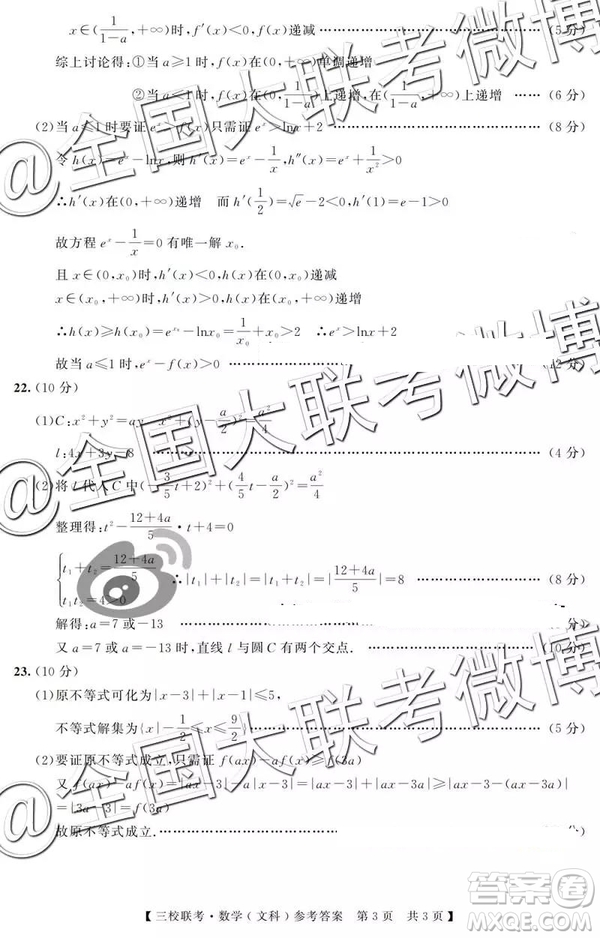 x∈(1/(1-a),+∞)时,f′(x)<0,f(x)递减 …… (5分)
综上讨论得:①当a≥1时,f(x)在(0,+∞)单调递增
②当a≤1时,f(x)在(0,1/(1-a))上递增,在(1/(1-a),+∞)上递增 …… (6分)
(2)当a≤1时要证eˣ>f(x)只需证eˣ>lnx+2 …… (8分)
令h(x)=eˣ-lnx,则h′(x)=eˣ-1/x,h″(x)=eˣ+1/x²>0
∴h′(x)在(0,+∞)递增 而h′(1/2)=√e-2<0,h′(1)=e-1>0
故方程eˣ-1/x=0有唯一x₀.
且x∈(0,x₀)时,h′(x)<0,h(x)递减
x∈(x₀,+∞)时,h′(x)>0,h(x)递增
∴h(x)≥h(x₀)=e^(x₀)-lnx₀=1/x₀+x₀>2 ∴eˣ>lnx+2
故当a≤1时,eˣ-f(x)>0 …… 分)
22.(10分)
(1)C:x²+y²=ay x²+(y-a/2)²=a²/4
l:4x+3y-8 …… (4分)
(2)将l代人C中(-3/5t+2)²+(4/5t-a/2)²=a²/4
整理得:t²-(12+4a)/5·t+4=0
{t₁+t₂=(12+4a)/5
t₁t₂=4>0 ∴|t₁|+|t₂|=|t₁+t₂|=|(12+4a)/5|=8 …… (8分)
解得:a=7或-13 …… 分)
又a=7或a=-13时,直线l与圆C有两个交点. …… (10分)
23.(10分)
(1)原不等式可化为|x-3|+|x-1|≤5,
不等式解集为{x|-1/2≤x≤9/2} …… (5分)
(2)要证原不等式成立,只需证f(ax)-af(x)≥f(3a)
又f(ax)-af(x)=|ax-3|-a|x-3|=|ax-3|+|ax-3a|≥|ax-3-(ax-3a)|=
|3a-3|=f(3a)
故原不等式成立. ……
【三校联考·数学(文科)参考答案 第3页 共3页】
@全国大联考微博
@全国大联考微博
@全国大联考微博
答案圈